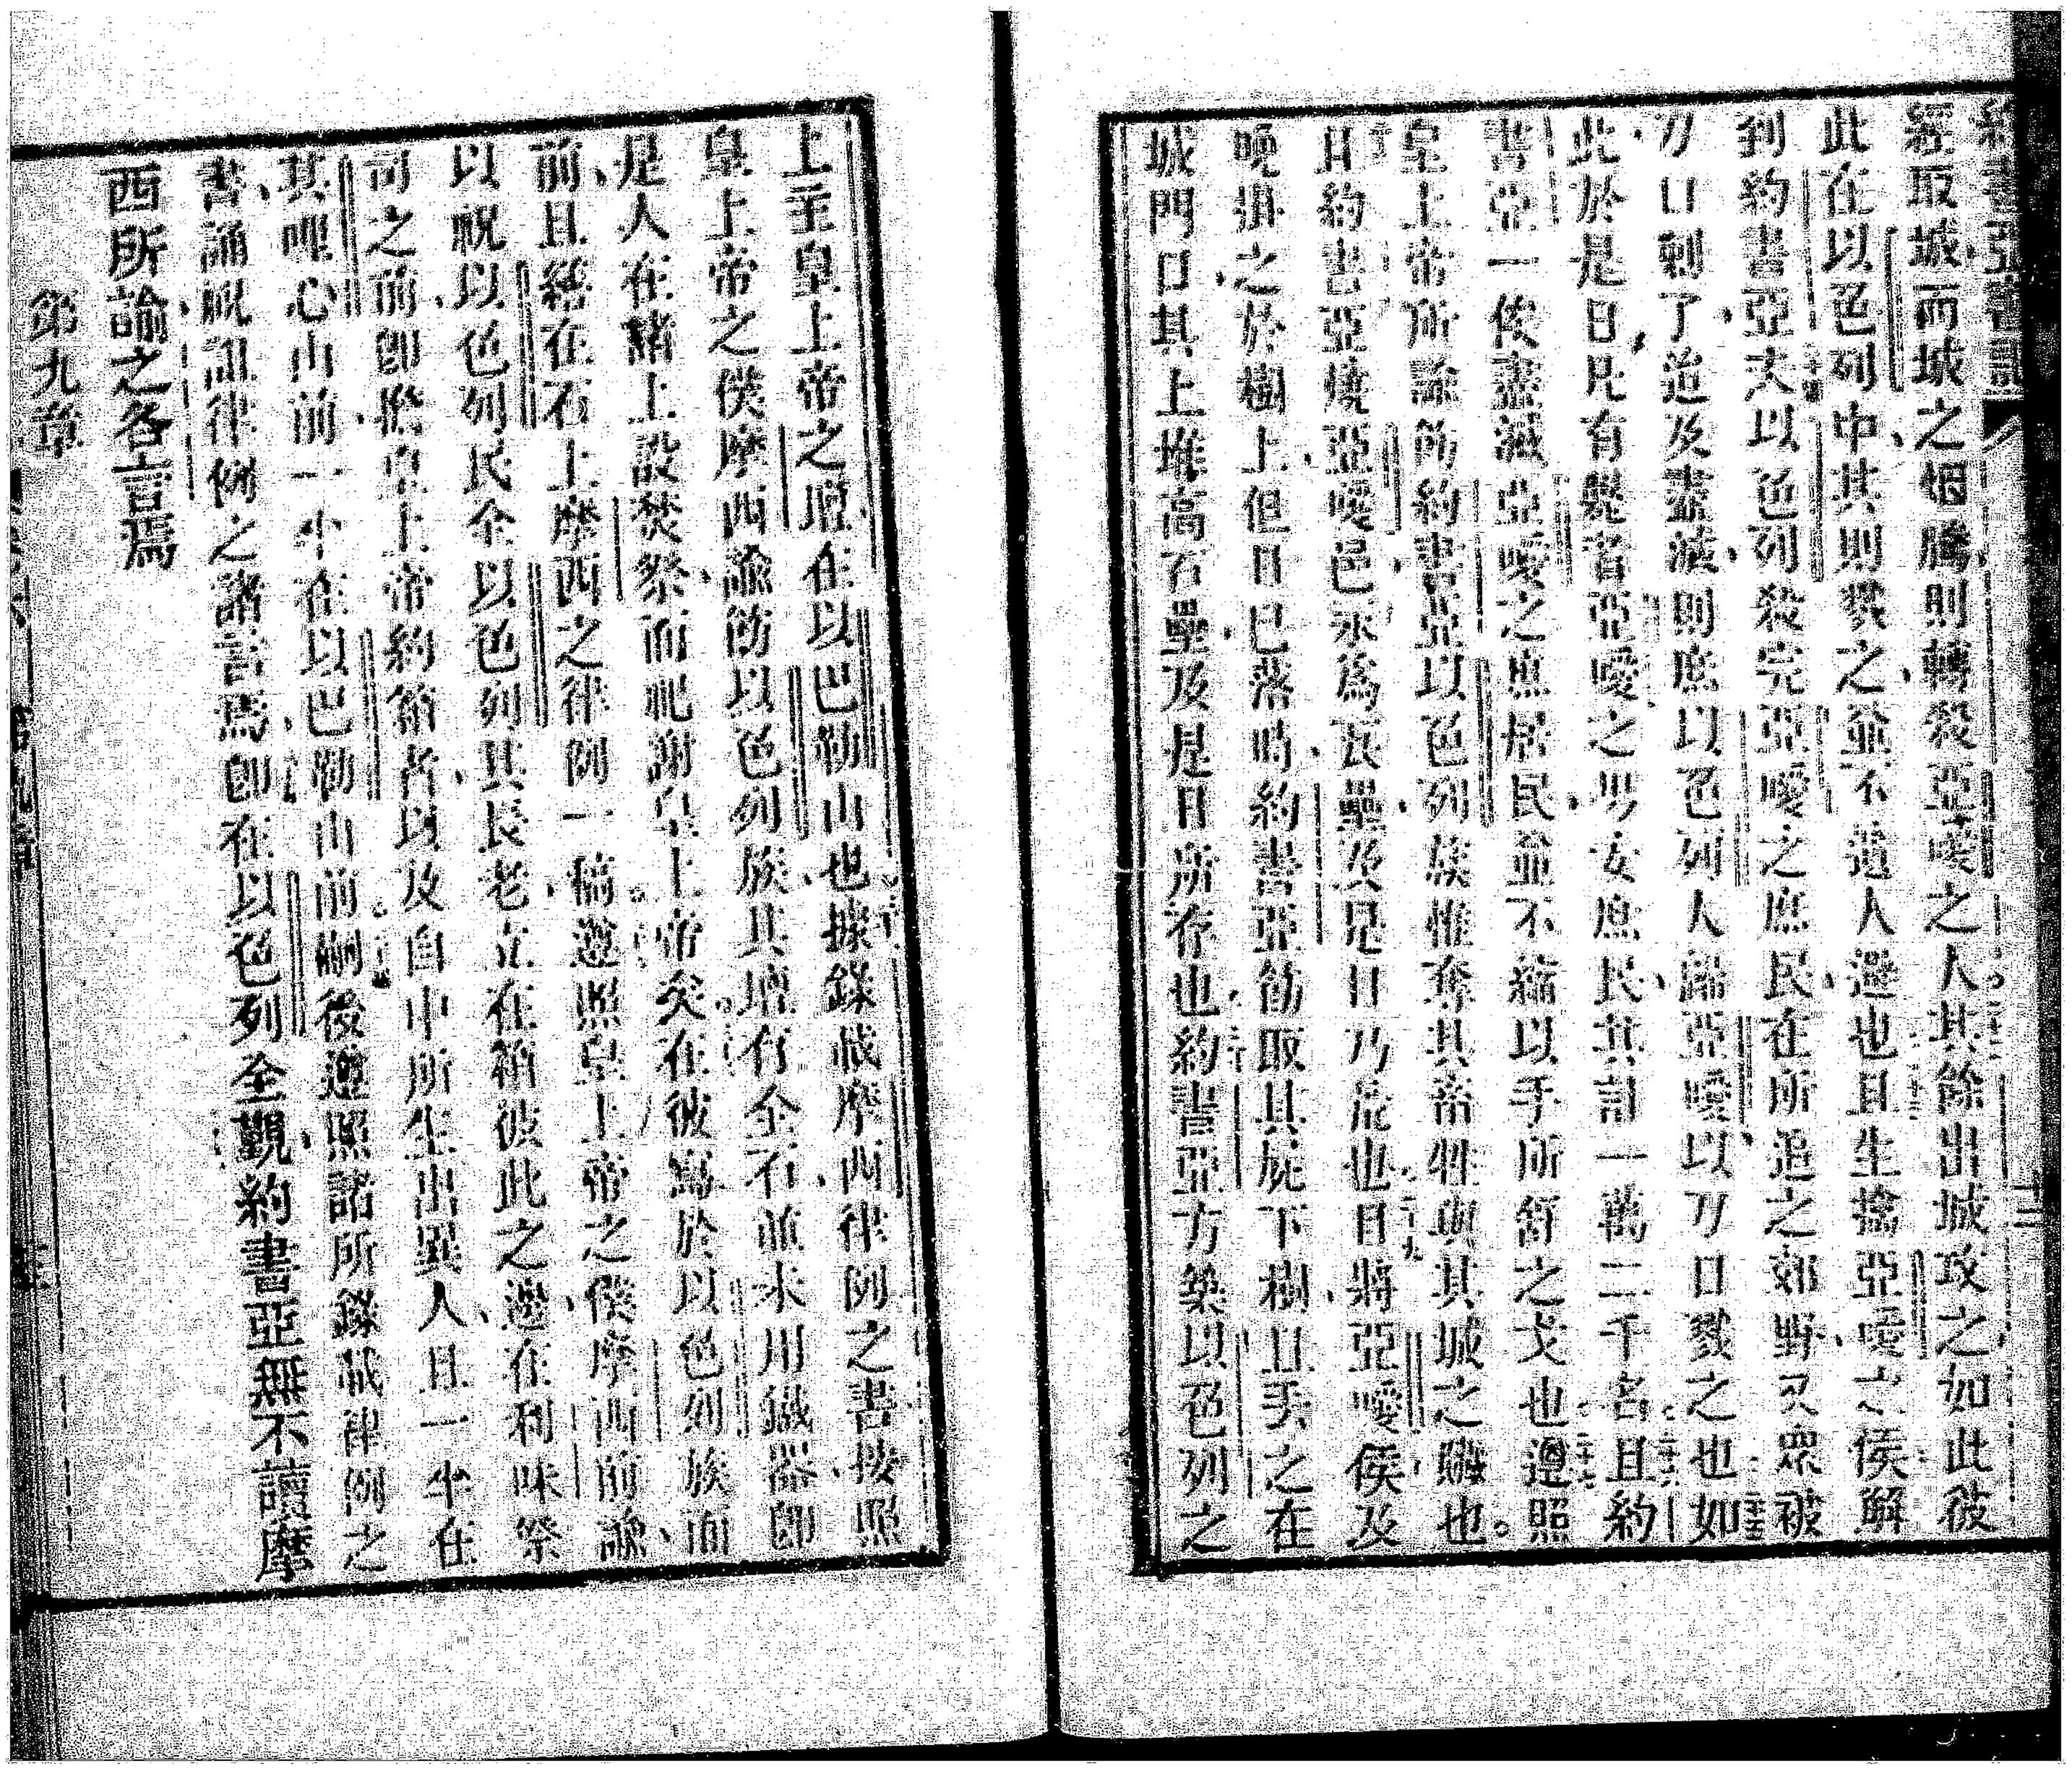 約書亞書
經取城而城之烟騰則轉殺亞噯之人其餘出城攻之如此彼
此在以色列中其則戮之並不遺人還也且生擒亞噯之侯解
到約書亞夫以色列殺完亞噯之庶民在所追之郊野又眾被
刀口刺了追及盡滅則庶以色列人歸亞噯以刀口戮之也如
此於是日凡有斃者亞噯之男女庶民共計一萬二千名且約
書亞一俟盡滅亞噯之庶居民並不縮以手所舒之戈也遵照
皇上帝所諭飭約書亞以色列族惟奪其畜牲與其城之贓也。
且約書亞燒亞噯邑永為丘壘及是日乃荒也且將亞噯侯及
晚掛之於樹上但日已落時約書亞飭取其屍下樹且丟之在
城門口其上堆高石壘及是日所存也約書亞方築以色列之
上主皇上帝之壇在以巴勒山也據錄載摩西律例之書按照
皇上帝之僕摩西諭飭以色列族其壇有全石並未用鐵器即
是人在諸上設焚祭而祀謝皇上帝矣在彼寫於以色列族面
前且繕在石上摩西之律例一稿遵照皇上帝之僕摩西前諭
以祝以色列民全以色列其長老立在箱彼此之邊在利味祭
司之前即擔皇上帝約箱者以及自中所生出異人且一半在
其哩心山前一半在以巴勒山前嗣後遵照諸所錄載律例之
書誦祝詛律例之諸言焉即在以色列全覲約書亞無不讀摩
西所諭之各言焉
第九章